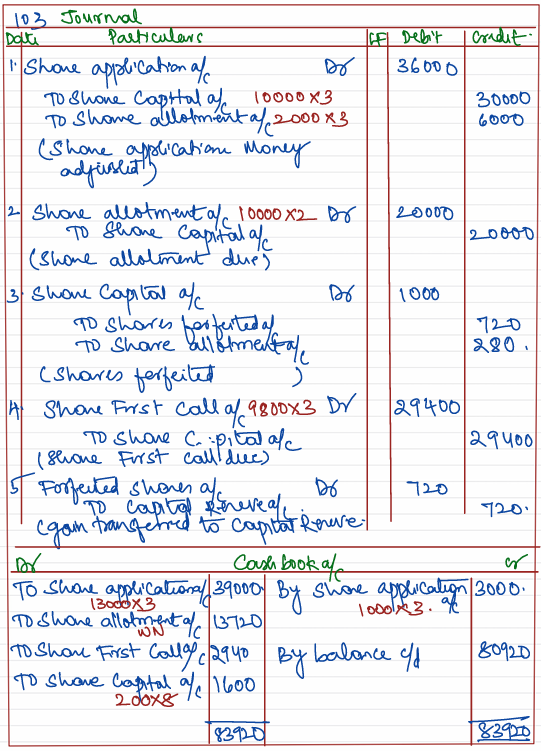 103 Journal
Date Particulars LF Debit Credit.
1. Share application a/c Dr 36000
To Share Capital a/c 10000×3 30000
To Share allotment a/c 2000×3 6000
(Share application Money
adjusted)
2 Share allotment a/c 10000×2 Dr 20000
To Share Capital a/c 20000
(Share allotment due)
3. Share Capital a/c Dr 1000
To Shares forfeited a/c 720
To Share allotment a/c 280.
(Shares forfeited )
4. Share First Call a/c 9800×3 Dr 29400
To Share C..pital a/c 29400
(Share First call due)
5 Forfeited shares a/c Dr 720
To Capital Reserve a/c. 720.
(gain transferred to Capital Reserve.
Dr Cash book a/c Cr
To Share application a/c 39000 By Share application a/c 3000.
13000×3 1000×3.
To Share allotment a/c 13720
WN
To Share First Call a/c 2940 By balance c/d 80920
To Share Capital a/c 1600
200×8
83920 83920